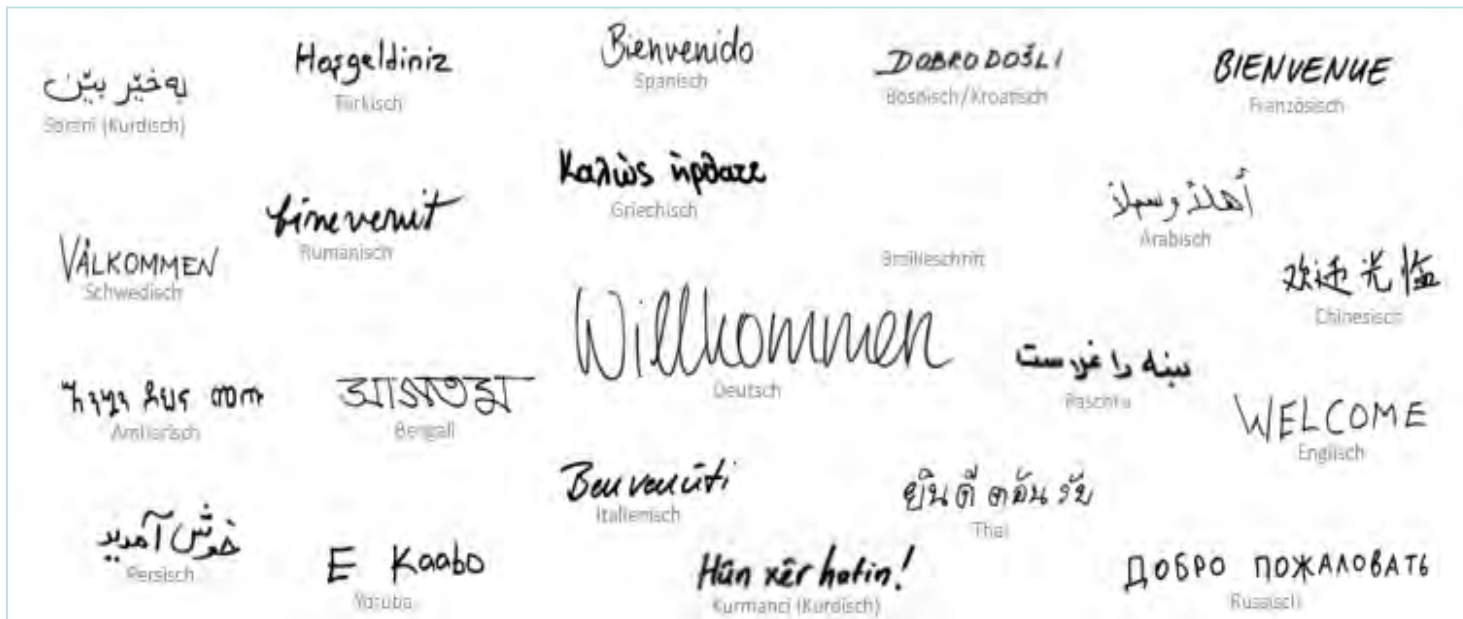 بەخێر بێن
Sorani (Kurdisch)
Hoşgeldiniz
Türkisch
Bienvenido
Spanisch
DOBRO DOŠLI
Bosnisch/Kroatisch
BIENVENUE
Französisch
Καλώς ήρθατε
Griechisch
أهلاً وسهلاً
Arabisch
bine venit
Rumänisch
VÄLKOMMEN
Schwedisch
Brailleschrift
欢迎光临
Chinesisch
Willkommen
Deutsch
Paschtu
Amharisch
Bengali
WELCOME
Englisch
Benvenuti
Italienisch
ยินดีต้อนรับ
Thai
خوش آمدید
Persisch
E Kaabo
Yoruba
Hûn xêr hatin!
Kurmanci (Kurdisch)
ДОБРО ПОЖАЛОВАТЬ
Russisch